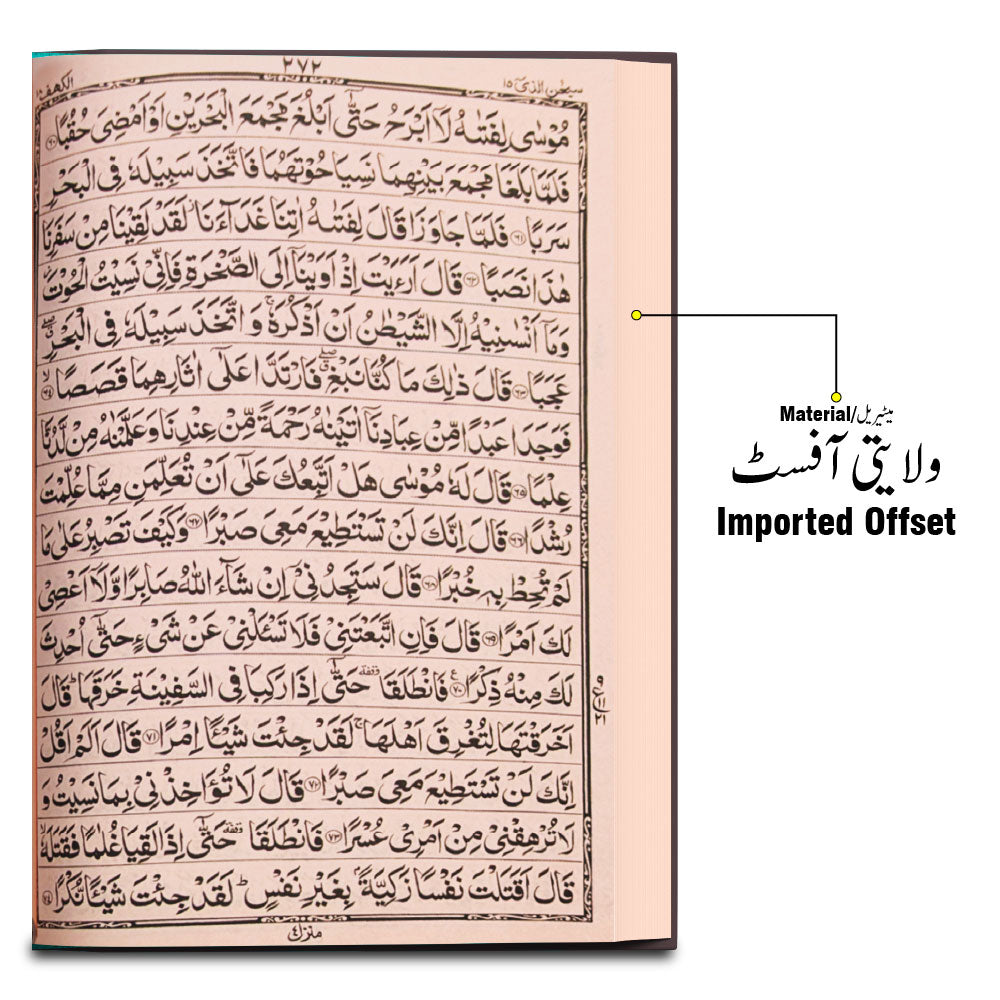 الكهف ١٨
٢٧٢
سبحن الذی ١٥
مُوْسٰى لِفَتٰىهُ لَاۤ اَبْرَحُ حَتّٰۤى اَبْلُغَ مَجْمَعَ الْبَحْرَيْنِ اَوْ اَمْضِىَ حُقُبًا ﴿٦٠﴾
فَلَمَّا بَلَغَا مَجْمَعَ بَيْنِهِمَا نَسِيَا حُوْتَهُمَا فَاتَّخَذَ سَبِيْلَهٗ فِى الْبَحْرِ
سَرَبًا ﴿٦١﴾ فَلَمَّا جَاوَزَا قَالَ لِفَتٰىهُ اٰتِنَا غَدَآءَنَا ز لَقَدْ لَقِيْنَا مِنْ سَفَرِنَا
هٰذَا نَصَبًا ﴿٦٢﴾ قَالَ اَرَءَيْتَ اِذْ اَوَيْنَاۤ اِلَى الصَّخْرَةِ فَاِنِّىْ نَسِيْتُ الْحُوْتَ ز
وَمَاۤ اَنْسٰنِيْهُ اِلَّا الشَّيْطٰنُ اَنْ اَذْكُرَهٗ ج وَاتَّخَذَ سَبِيْلَهٗ فِى الْبَحْرِ
عَجَبًا ﴿٦٣﴾ قَالَ ذٰلِكَ مَا كُنَّا نَبْغِ فَارْتَدَّا عَلٰۤى اٰثَارِهِمَا قَصَصًا ﴿٦٤﴾
فَوَجَدَا عَبْدًا مِّنْ عِبَادِنَاۤ اٰتَيْنٰهُ رَحْمَةً مِّنْ عِنْدِنَا وَعَلَّمْنٰهُ مِنْ لَّدُنَّا
عِلْمًا ﴿٦٥﴾ قَالَ لَهٗ مُوْسٰى هَلْ اَتَّبِعُكَ عَلٰۤى اَنْ تُعَلِّمَنِ مِمَّا عُلِّمْتَ
رُشْدًا ﴿٦٦﴾ قَالَ اِنَّكَ لَنْ تَسْتَطِيْعَ مَعِىَ صَبْرًا ﴿٦٧﴾ وَكَيْفَ تَصْبِرُ عَلٰى مَا
لَمْ تُحِطْ بِهٖ خُبْرًا ﴿٦٨﴾ قَالَ سَتَجِدُنِىْۤ اِنْ شَآءَ اللّٰهُ صَابِرًا وَّلَاۤ اَعْصِىْ
لَكَ اَمْرًا ﴿٦٩﴾ قَالَ فَاِنِ اتَّبَعْتَنِىْ فَلَا تَسْـَٔلْنِىْ عَنْ شَىْءٍ حَتّٰۤى اُحْدِثَ
لَكَ مِنْهُ ذِكْرًا ﴿٧٠﴾ ع فَانْطَلَقَا وقفه حَتّٰۤى اِذَا رَكِبَا فِى السَّفِيْنَةِ خَرَقَهَا ط قَالَ
اَخَرَقْتَهَا لِتُغْرِقَ اَهْلَهَا ج لَقَدْ جِئْتَ شَيْـًٔا اِمْرًا ﴿٧١﴾ قَالَ اَلَمْ اَقُلْ
اِنَّكَ لَنْ تَسْتَطِيْعَ مَعِىَ صَبْرًا ﴿٧٢﴾ قَالَ لَا تُؤَاخِذْنِىْ بِمَا نَسِيْتُ وَ
لَا تُرْهِقْنِىْ مِنْ اَمْرِىْ عُسْرًا ﴿٧٣﴾ فَانْطَلَقَا وقفه حَتّٰۤى اِذَا لَقِيَا غُلٰمًا فَقَتَلَهٗ لا
قَالَ اَقَتَلْتَ نَفْسًا زَكِيَّةً ۢ بِغَيْرِ نَفْسٍ ط لَقَدْ جِئْتَ شَيْـًٔا نُّكْرًا ﴿٧٤﴾
منزل ٤
Material/میٹیریل
ولایتی آفسٹ
Imported Offset